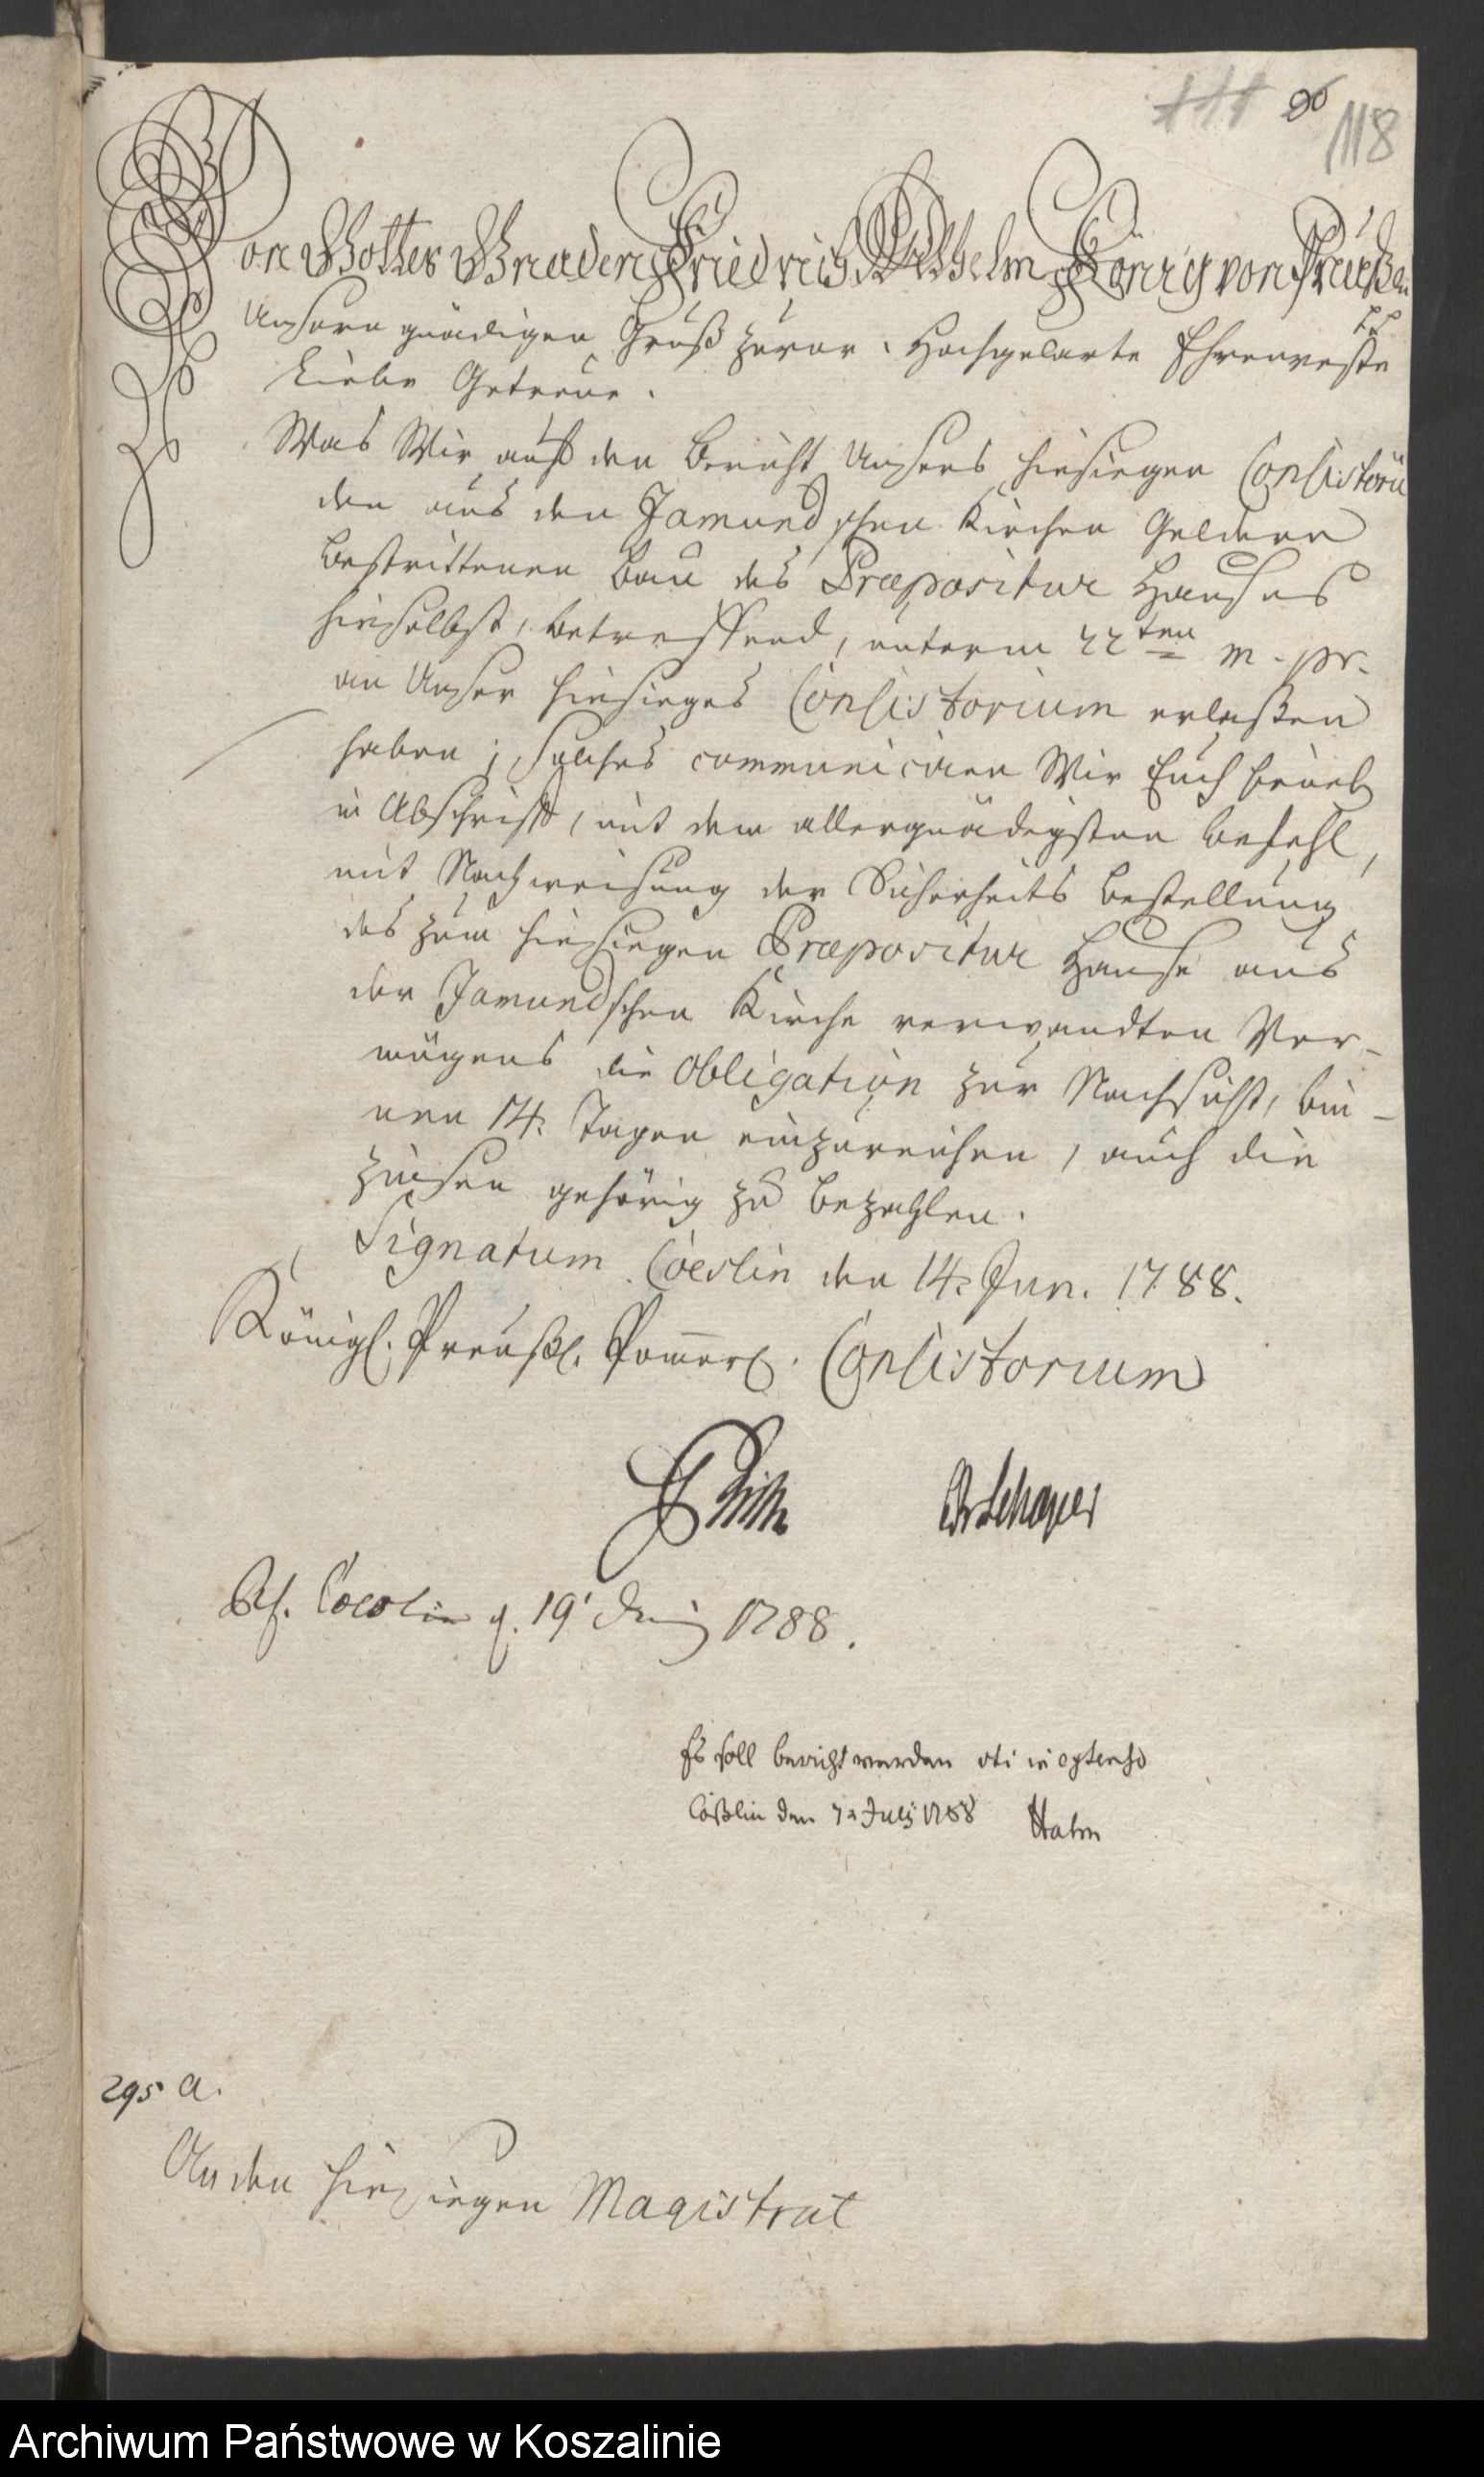 111 90 118
Von Gottes Gnaden Friedrich Wilhelm König von Preußen
Unsern gnädigen Gruß zuvor, Hochgelarte Ehrenveste
Liebe Getreue.
Was Wir auf den Bericht Unsers hiesigen Consistorii
den aus den Jamundschen Kirchen Geldern
bestrittenen Bau des Præpositur Hauses
hieselbst, betreffend, unterm 22ten m. pr.
an Unser hiesieges Consistorium erlaßen
haben; solches communiciren Wir Euch hiebey
in Abschrift, mit dem allergnädigsten Befehl,
mit Nachweisung der Sicherheits Bestellung
des zum hiesiegen Præpositur Hause aus
der Jamundschen Kirche verwandten Ver-
mögens die Obligation zur Nachsicht, bin-
nen 14. Tagen einzureichen, auch die
Zinsen gehörig zu bezahlen.
Signatum Coeslin den 14. Jun. 1788.
Königl. Preußl. Pommersch. Consistorium
Coeslin d. 19 Junij 1788.
Es soll bericht werden uti in extenso
Cößlin den 7n Julij 1788 Hahn
295 a.
An den hiesiegen Magistrat
Archiwum Państwowe w Koszalinie